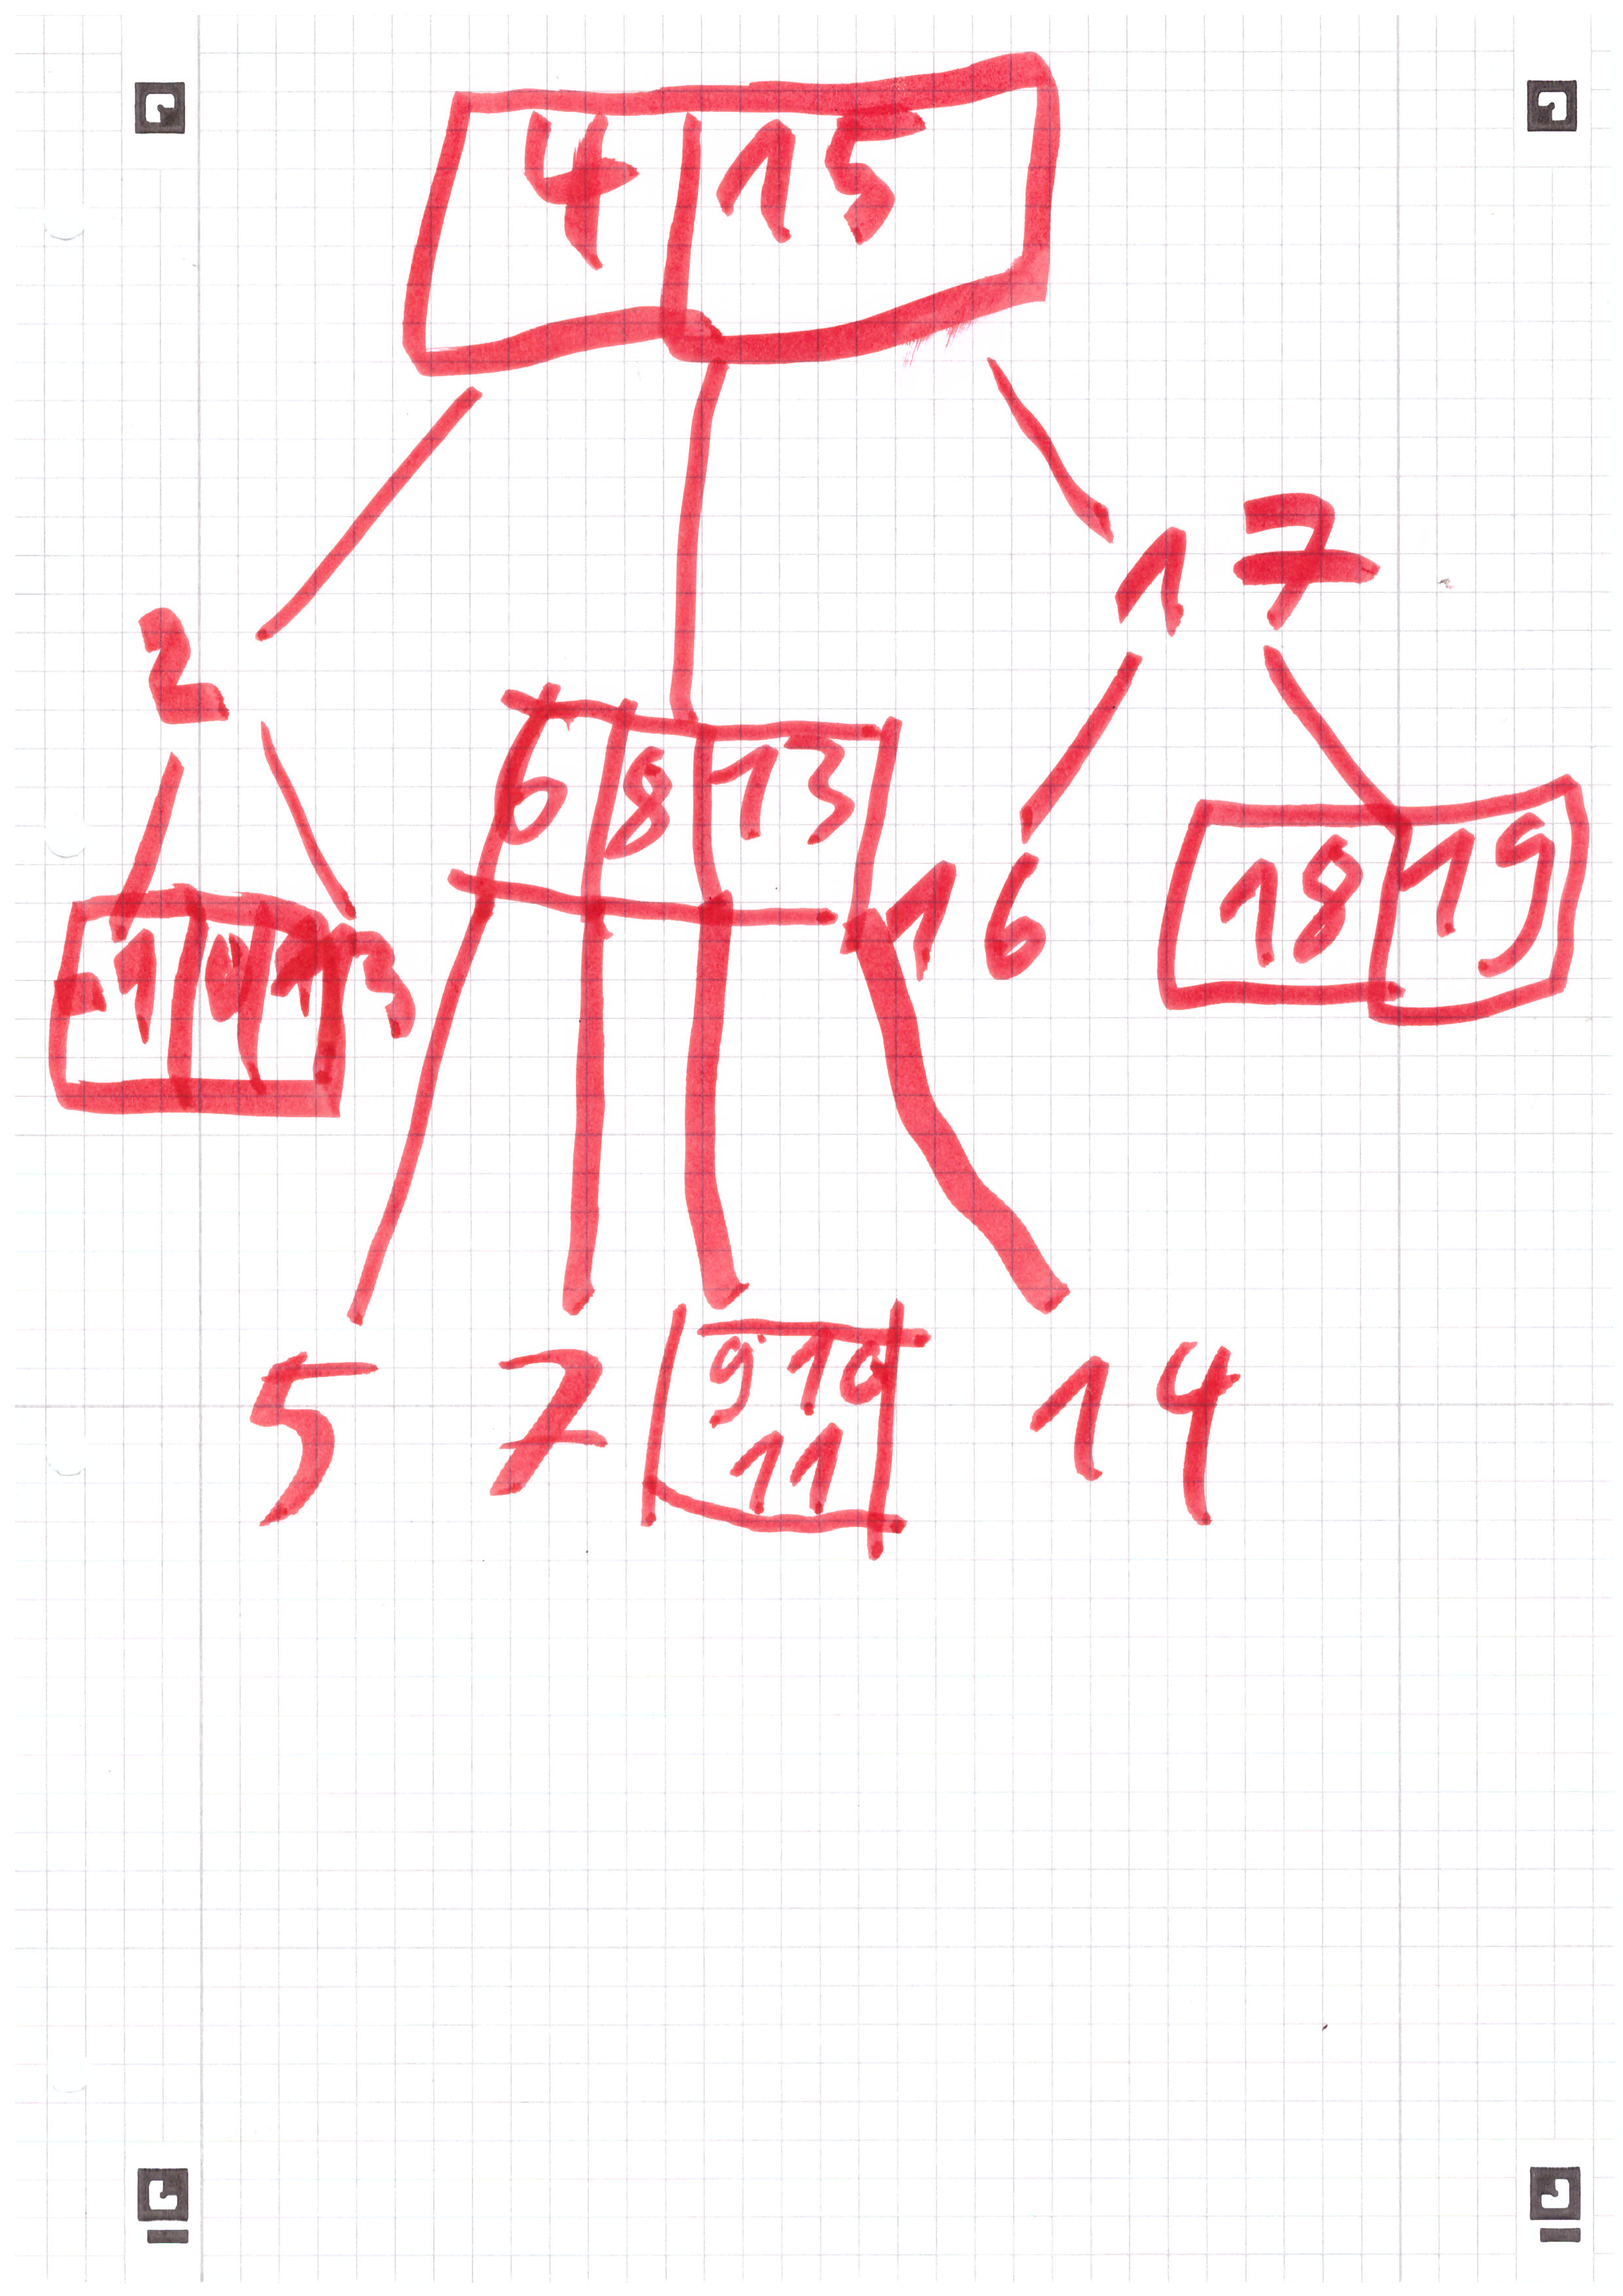 4 15
2 17
6 8 13
-1 0 1 3 16 18 19
5 7 9 10 14
11